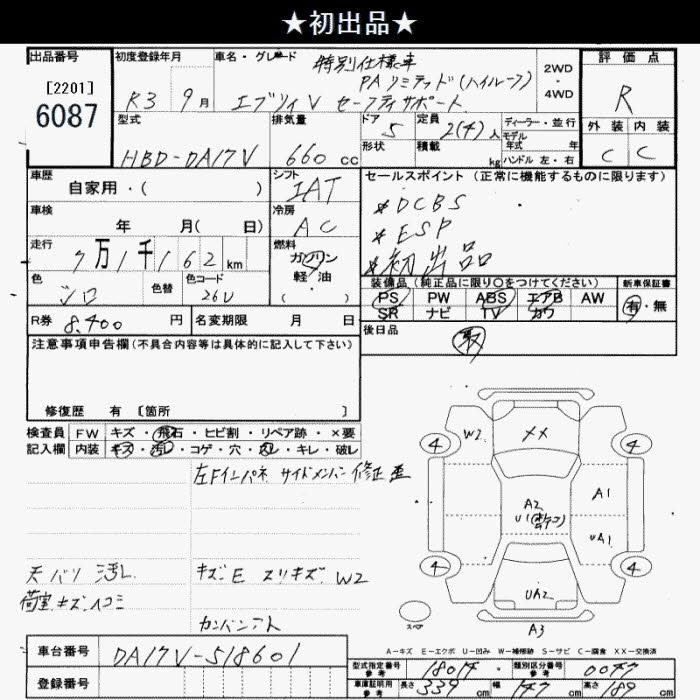 ★初出品★
出品番号 初度登録年月 車名・グレード 特別仕様車
[2201]
6087
R3 9月
PAリミテッド(ハイルーフ)
エブリィV セーフティサポート
2WD
4WD
評価点
R
外装 内装
C C
型式 HBD-DA17V
排気量 660 cc
ドア 5
形状
定員 2(4)人
積載 kg
ディーラー・並行
モデル
年式 年
ハンドル 左・右
車歴 自家用・( )
シフト IAT
車検 年 月( 日)
冷房 AC
走行 7万1千162 km
燃料 ガソリン
軽・油
( )
色 シロ 色替 色コード 26U
R券 8,400 円 名変期限 月 日
セールスポイント(正常に機能するものに限ります)
*DCBS
*ESP
*初出品
装備品(純正品に限り○をつけてください) 新車保証書
PS PW ABS エアB AW
SR ナビ TV カワ
有・無
後日品
取
注意事項申告欄(不具合内容等は具体的に記入して下さい)
修復歴 有 [箇所 ]
検査員 FW キズ・飛石・ヒビ割・リペア跡・×要
記入欄 内装 キズ・汚れ・コゲ・穴・・キレ・破レ
左Fインパネ サイドメンバー修正歪
天バリ 汚レ
荷室キズ・凹コミ
キズ:E スリキズ:W2
カンバンアト
4 W2 XX 4
A2 A1
U1 UA1
4 UA2 4
スペア
A3
A-キズ E-エクボ U-凹み W-補修跡 S-サビ C-腐食 XX-交換済
車台番号 DA17V-518601
登録番号
型式指定番号 参考 18014 ・ 類別区分番号 参考 0047
車庫証明用 参考 長さ 339 cm 幅 147 cm 高さ 189 cm